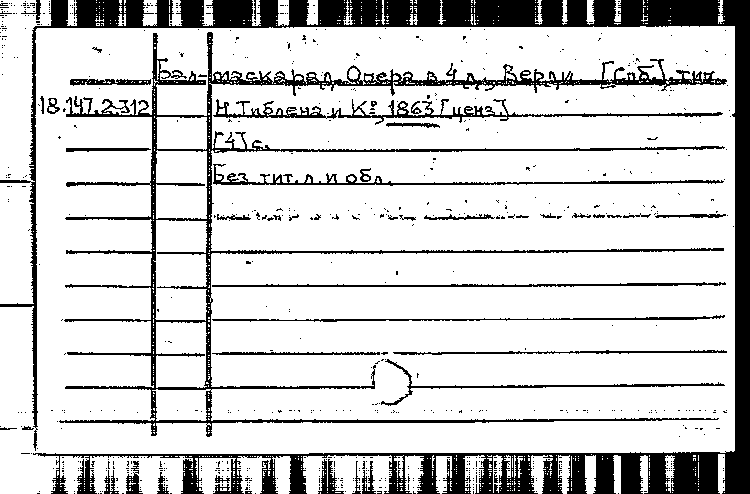 Бал-маскарад. Опера в 4 д., Верди [Спб], тип.
18.147.2.312 Н. Тиблена и Кº, 1863 [ценз].
[4] с.
Без тит. л. и обл.